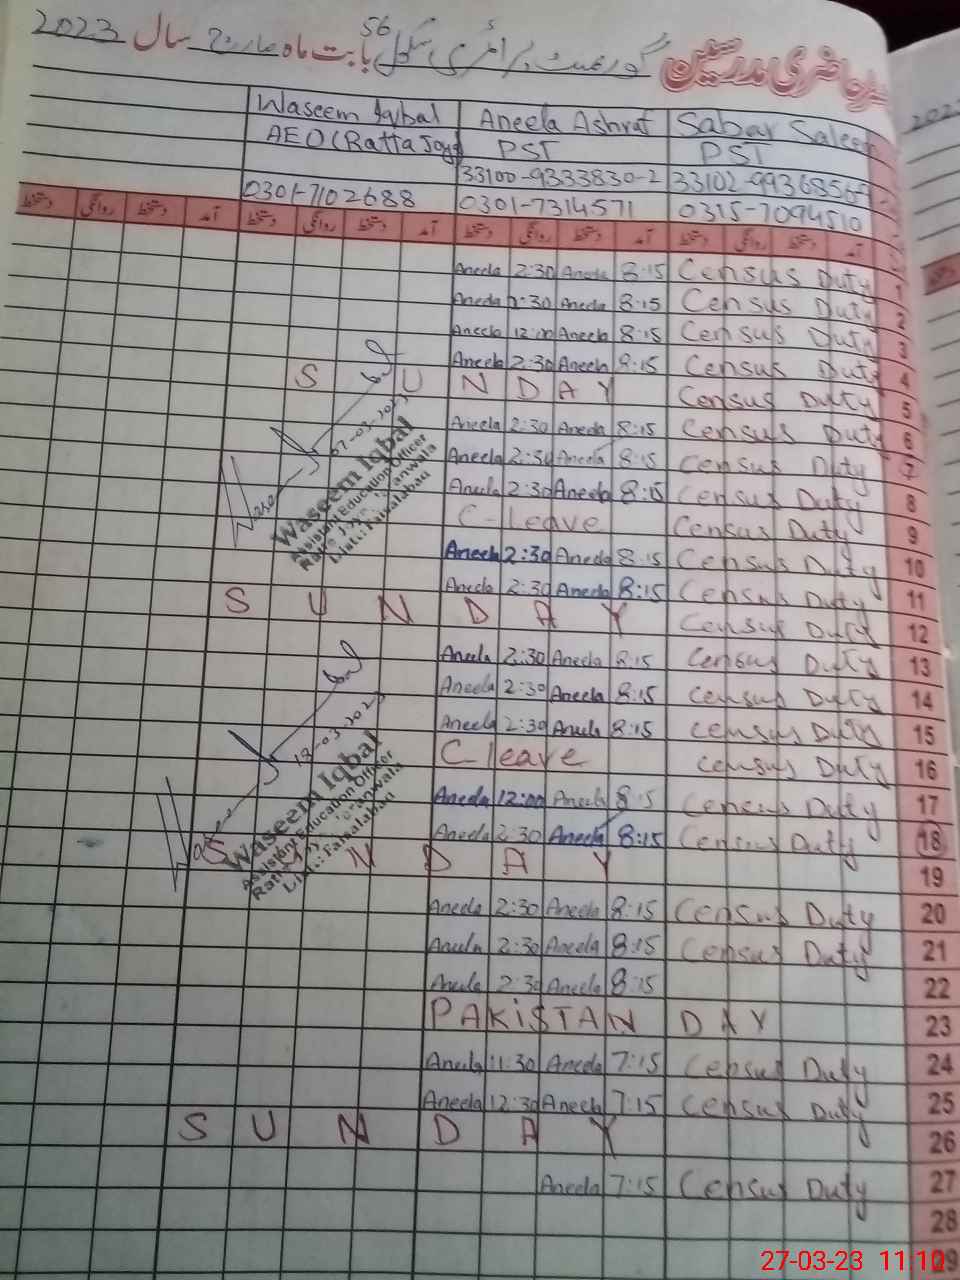 حاضری مدرسین گورنمنٹ پرائمری سکول 56 بابت ماہ مارچ سال 2023
Waseem Iqbal Aneela Ashraf Sabar Saleem
AEO (Ratta Joya) PST PST
33100-9333830-2
0301-7102688 0301-7314571 0315-7094510
دستخط روانگی دستخط آمد دستخط روانگی دستخط آمد دستخط روانگی دستخط آمد دستخط روانگی دستخط آمد
Aneela 2:30 Aneela 8:15 Census Duty 1
Aneela 2:30 Aneela 8:15 Census Duty 2
Aneela 12:00 Aneela 8:15 Census Duty 3
Aneela 2:30 Aneela 8:15 Census Duty 4
S U N D A Y Census Duty 5
Aneela 2:30 Aneela 8:15 Census Duty 6
Aneela 2:30 Aneela 8:15 Census Duty 7
Aneela 2:30 Aneela 8:15 Census Duty 8
C-leave Census Duty 9
Aneela 2:30 Aneela 8:15 Census Duty 10
Aneela 2:30 Aneela 8:15 Census Duty 11
S U N D A Y Census Duty 12
Aneela 2:30 Aneela 8:15 Census Duty 13
Aneela 2:30 Aneela 8:15 Census Duty 14
Aneela 2:30 Aneela 8:15 Census Duty 15
C-leave Census Duty 16
Aneela 12:00 Aneela 8:15 Census Duty 17
Aneela 2:30 Aneela 8:15 Census Duty 18
S U N D A Y 19
Aneela 2:30 Aneela 8:15 Census Duty 20
Aneela 2:30 Aneela 8:15 Census Duty 21
Aneela 2:30 Aneela 8:15 22
PAKISTAN DAY 23
Aneela 11:30 Aneela 7:15 Census Duty 24
Aneela 12:30 Aneela 7:15 Census Duty 25
S U N D A Y 26
Aneela 7:15 Census Duty 27
28
29
07-03-2023
Waseem Iqbal
Assistant Education Officer
Distt: Faisalabad
18-03-2023
Waseem Iqbal
Assistant Education Officer
Distt: Faisalabad
27-03-23 11:10